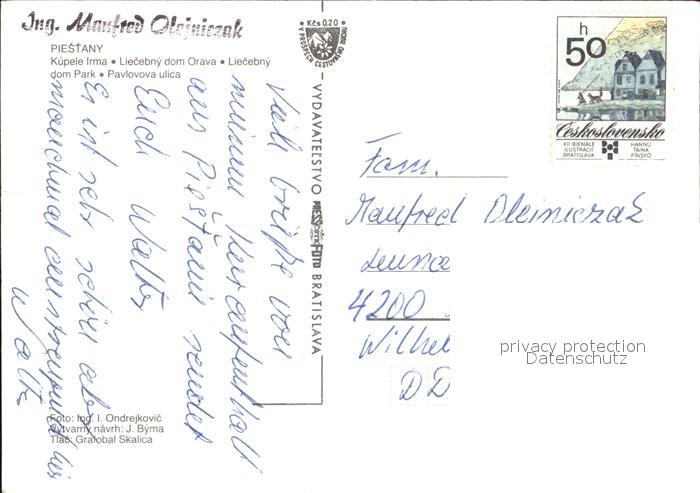 Ing. Manfred Olejniczak
PIEŠŤANY
Kúpele Irma • Liečebný dom Orava • Liečebný
dom Park • Pavlovova ulica
Kčs 0.20
V PROSPECH CESTOVNÉHO RUCHU
VYDAVATEĽSTVO PRESSFOTO BRATISLAVA
50 h
Československo
XII BIENÁLE
ILUSTRÁCIÍ
BRATISLAVA
HANNU
TAINA
FÍNSKO
Viele Grüße von
meinem Kuraufenthalt
aus Piešťani sendet
Euch Walter
Es ist sehr schön aber
manchmal anstrengend
Walter
Fam.
Manfred Olejniczak
4200
Wilhel
DD
privacy protection
Datenschutz
Foto: Ing. I. Ondrejkovič
Výtvarný návrh: J. Býma
Tlač: Grafobal Skalica